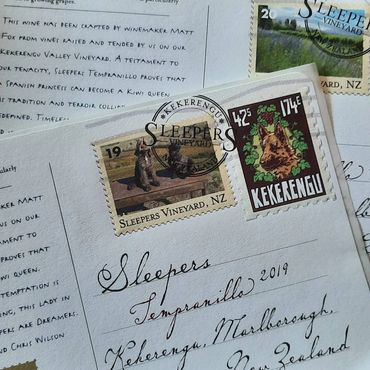 growing grapes.
This wine has been crafted by winemaker Matt
Fox from vines raised and tended by us on our
Kekerengu Valley Vineyard. A testament to
our tenacity, Sleepers Tempranillo proves that
Spanish princess can become a Kiwi queen.
is tradition and terroir
redefined. Timeless
20
Sleepers
Vineyard, NZ
Kekerengu
Sleepers
19
Sleepers Vineyard, NZ
42°S 174°E
Kekerengu
Matt
us on our
ament to
proves that
Kiwi queen.
Temptation is
ng, this lady in
pers are Dreamers.
nd Chris Wilson
Sleepers
Tempranillo 2019
Kekerengu, Marlborough,
New Zealand